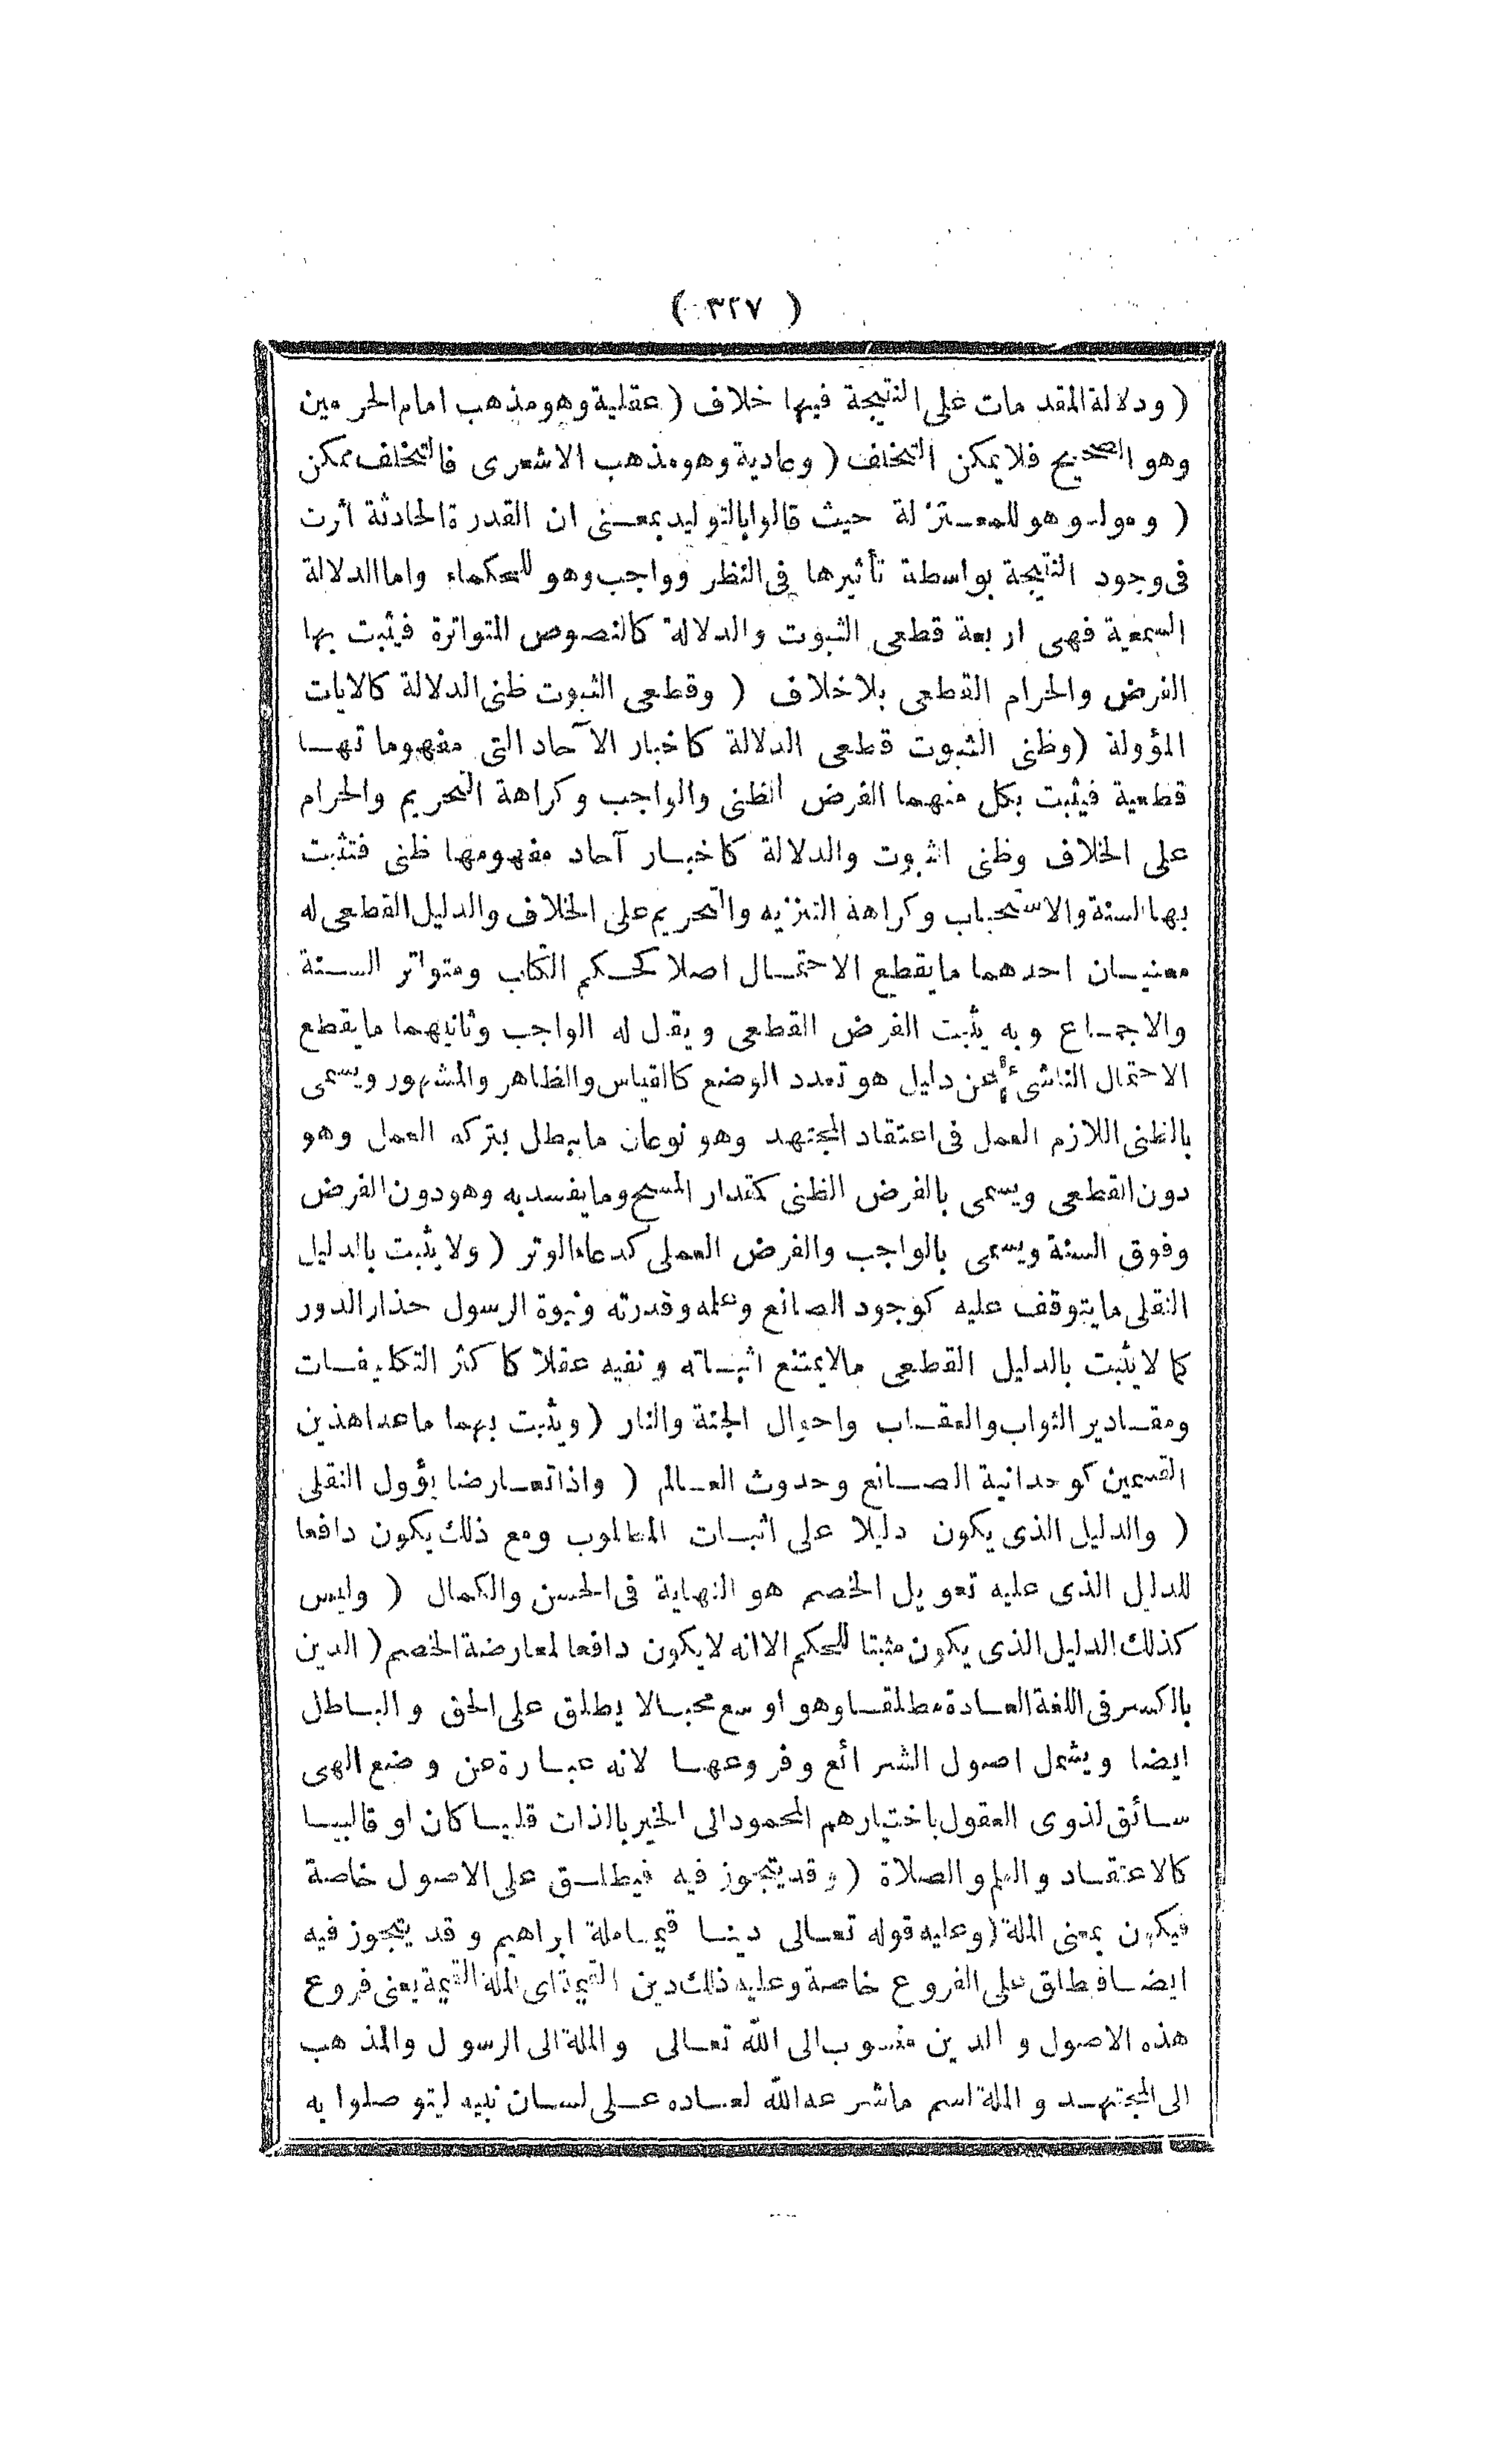 ( ٣٢٧ )
( ودلالة المقدمات على النتيجة فيها خلاف ( عقلية وهو مذهب امام الحرمين
وهو الصحيح فلا يمكن التخلف ( وعادية وهو مذهب الاشعرى فالتخلف ممكن
( ومولد وهو للمعتزلة حيث قالوا بالتوليد بمعنى ان القدرة الحادثة أثرت
فى وجود النتيجة بواسطة تأثيرها فى النظر وواجب وهو للحكماء واما الدلالة
السمعية فهى اربعة قطعى الثبوت والدلالة كالنصوص المتواترة فيثبت بها
الفرض والحرام القطعى بلا خلاف ( وقطعى الثبوت ظنى الدلالة كالايات
المؤولة ( وظنى الثبوت قطعى الدلالة كاخبار الآحاد التى مفهوماتها
قطعية فيثبت بكل منهما الفرض الظنى والواجب وكراهة التحريم والحرام
على الخلاف وظنى الثبوت والدلالة كاخبار آحاد مفهومها ظنى فتثبت
بها السنة والاستحباب وكراهة التنزيه والتحريم على الخلاف والدليل القطعى له
معنيان احدهما ما يقطع الاحتمال اصلا كحكم الكتاب ومتواتر السنة
والاجماع وبه يثبت الفرض القطعى ويقال له الواجب وثانيهما ما يقطع
الاحتمال الناشئ عن دليل هو تعدد الوضع كالقياس والظاهر والمشهور ويسمى
بالظنى اللازم العمل فى اعتقاد المجتهد وهو نوعان ما يبطل بتركه العمل وهو
دون القطعى ويسمى بالفرض الظنى كمقدار المسح وما يفسد به وهو دون الفرض
وفوق السنة ويسمى بالواجب والفرض العملى كدعاء الوتر ( ولا يثبت بالدليل
النقلى ما يتوقف عليه كوجود الصانع وعلمه وقدرته ونبوة الرسول حذار الدور
كما لا يثبت بالدليل القطعى ما لا يمتنع اثباته ونفيه عقلا كاكثر التكليفات
ومقادير الثواب والعقاب واحوال الجنة والنار ( ويثبت بهما ما عدا هذين
القسمين كوحدانية الصانع وحدوث العالم ( واذا تعارضا يؤول النقلى
( والدليل الذى يكون دليلا على اثبات المطلوب ومع ذلك يكون دافعا
للدليل الذى عليه تعويل الخصم هو النهاية فى الحسن والكمال ( وليس
كذلك الدليل الذى يكون مثبتا للحكم الا انه لا يكون دافعا لمعارضة الخصم ( الدين
بالكسر فى اللغة العادة مطلقا وهو اوسع مجالا يطلق على الحق والباطل
ايضا ويشمل اصول الشرائع وفروعها لانه عبارة عن وضع الهى
سائق لذوى العقول باختيارهم المحمود الى الخير بالذات قلبيا كان او قالبيا
كالاعتقاد والعلم والصلاة ( وقد يتجوز فيه فيطلق على الاصول خاصة
فيكون بمعنى الملة ( وعليه قوله تعالى دينا قيما ملة ابراهيم وقد يتجوز فيه
ايضا فيطلق على الفروع خاصة وعليه ذلك دين القيمة اى الملة القيمة يعنى فروع
هذه الاصول والدين منسوب الى الله تعالى والملة الى الرسول والمذهب
الى المجتهد والملة اسم ما شرعه الله لعباده على لسان نبيه ليتوصلوا به